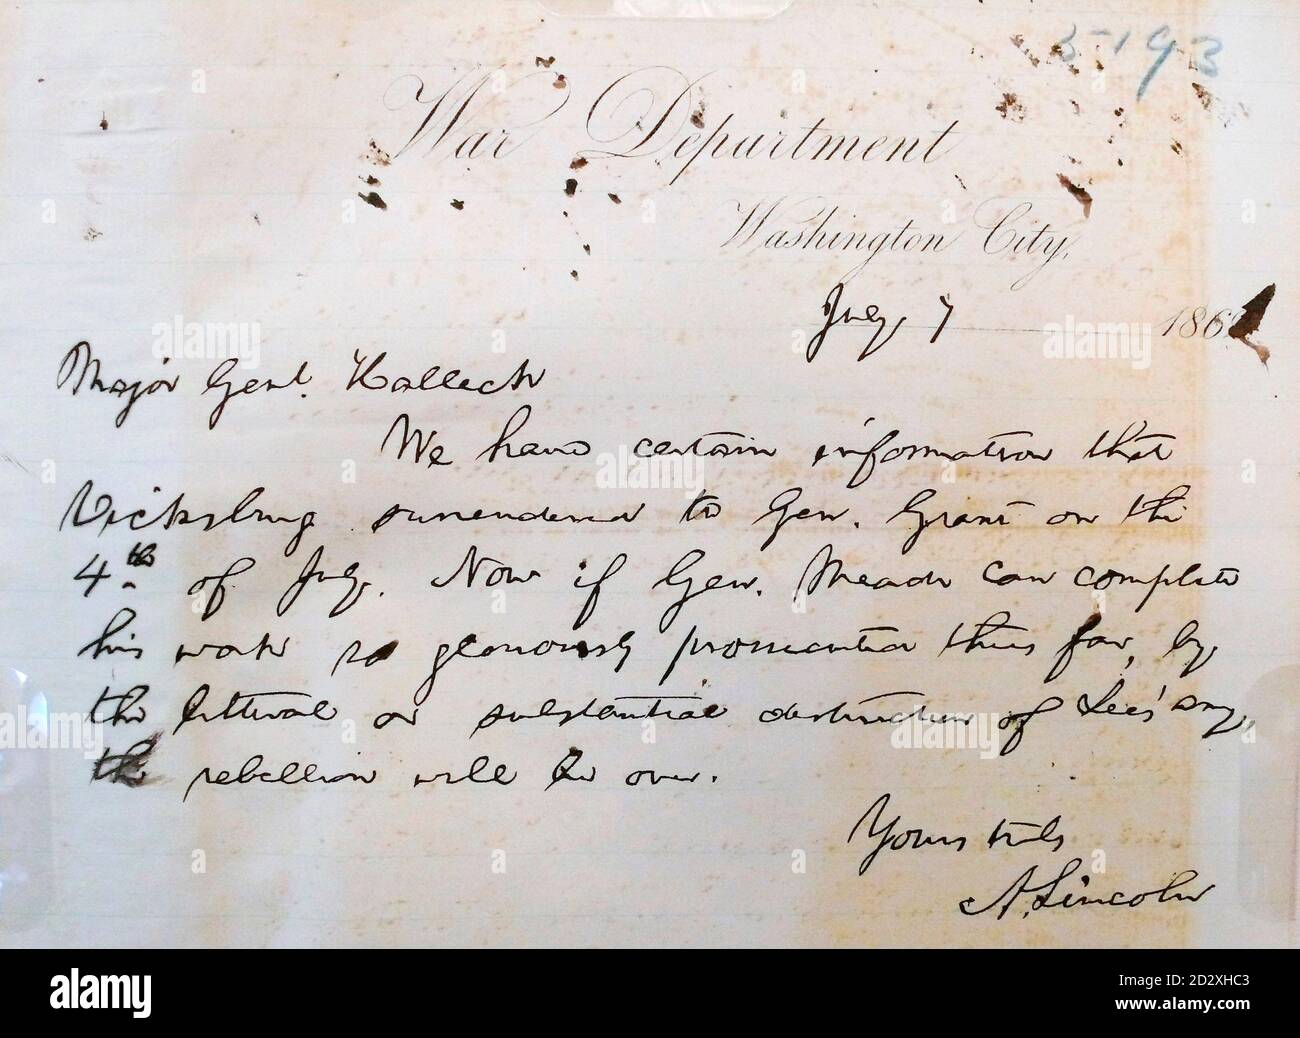 5193
War Department
Washington City,
July 7 186
Major Genl. Halleck
We have certain information that
Vicksburg surrendered to Gen. Grant on the
4th of July. Now if Gen. Meade can complete
his work so gloriously prosecuted thus far, by
the litteral or substantial destruction of Lee's army,
the rebellion will be over.
Yours truly
A. Lincoln
alamy
Image ID: 2D2XHC3
www.alamy.com